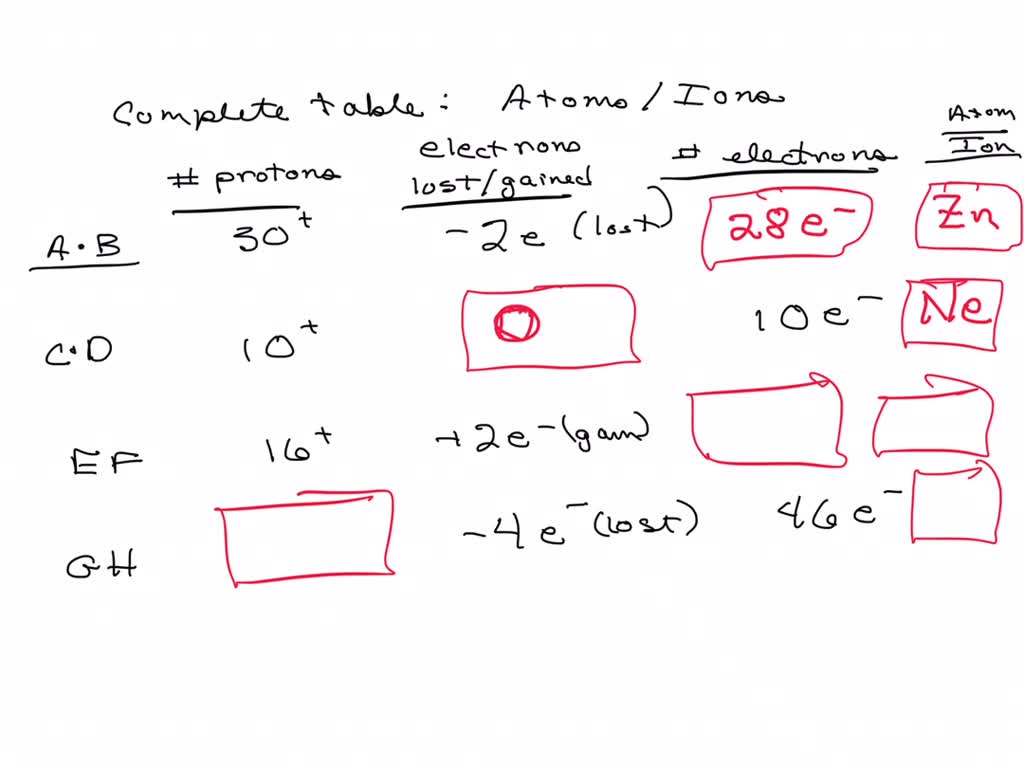 Complete table: Atoms/Ions
# protons
electrons
lost/gained
# electrons
Atom
Ion
A.B 30+ -2e (lost) 28e- Zn
C.D 10+ 0 10e- Ne
EF 16+ +2e- (gain)
GH -4e- (lost) 46e-